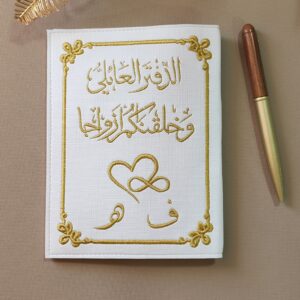 الدفتر العائلي
وَخَلَقْنَاكُمْ أَزْوَاجًا
ف
هـ